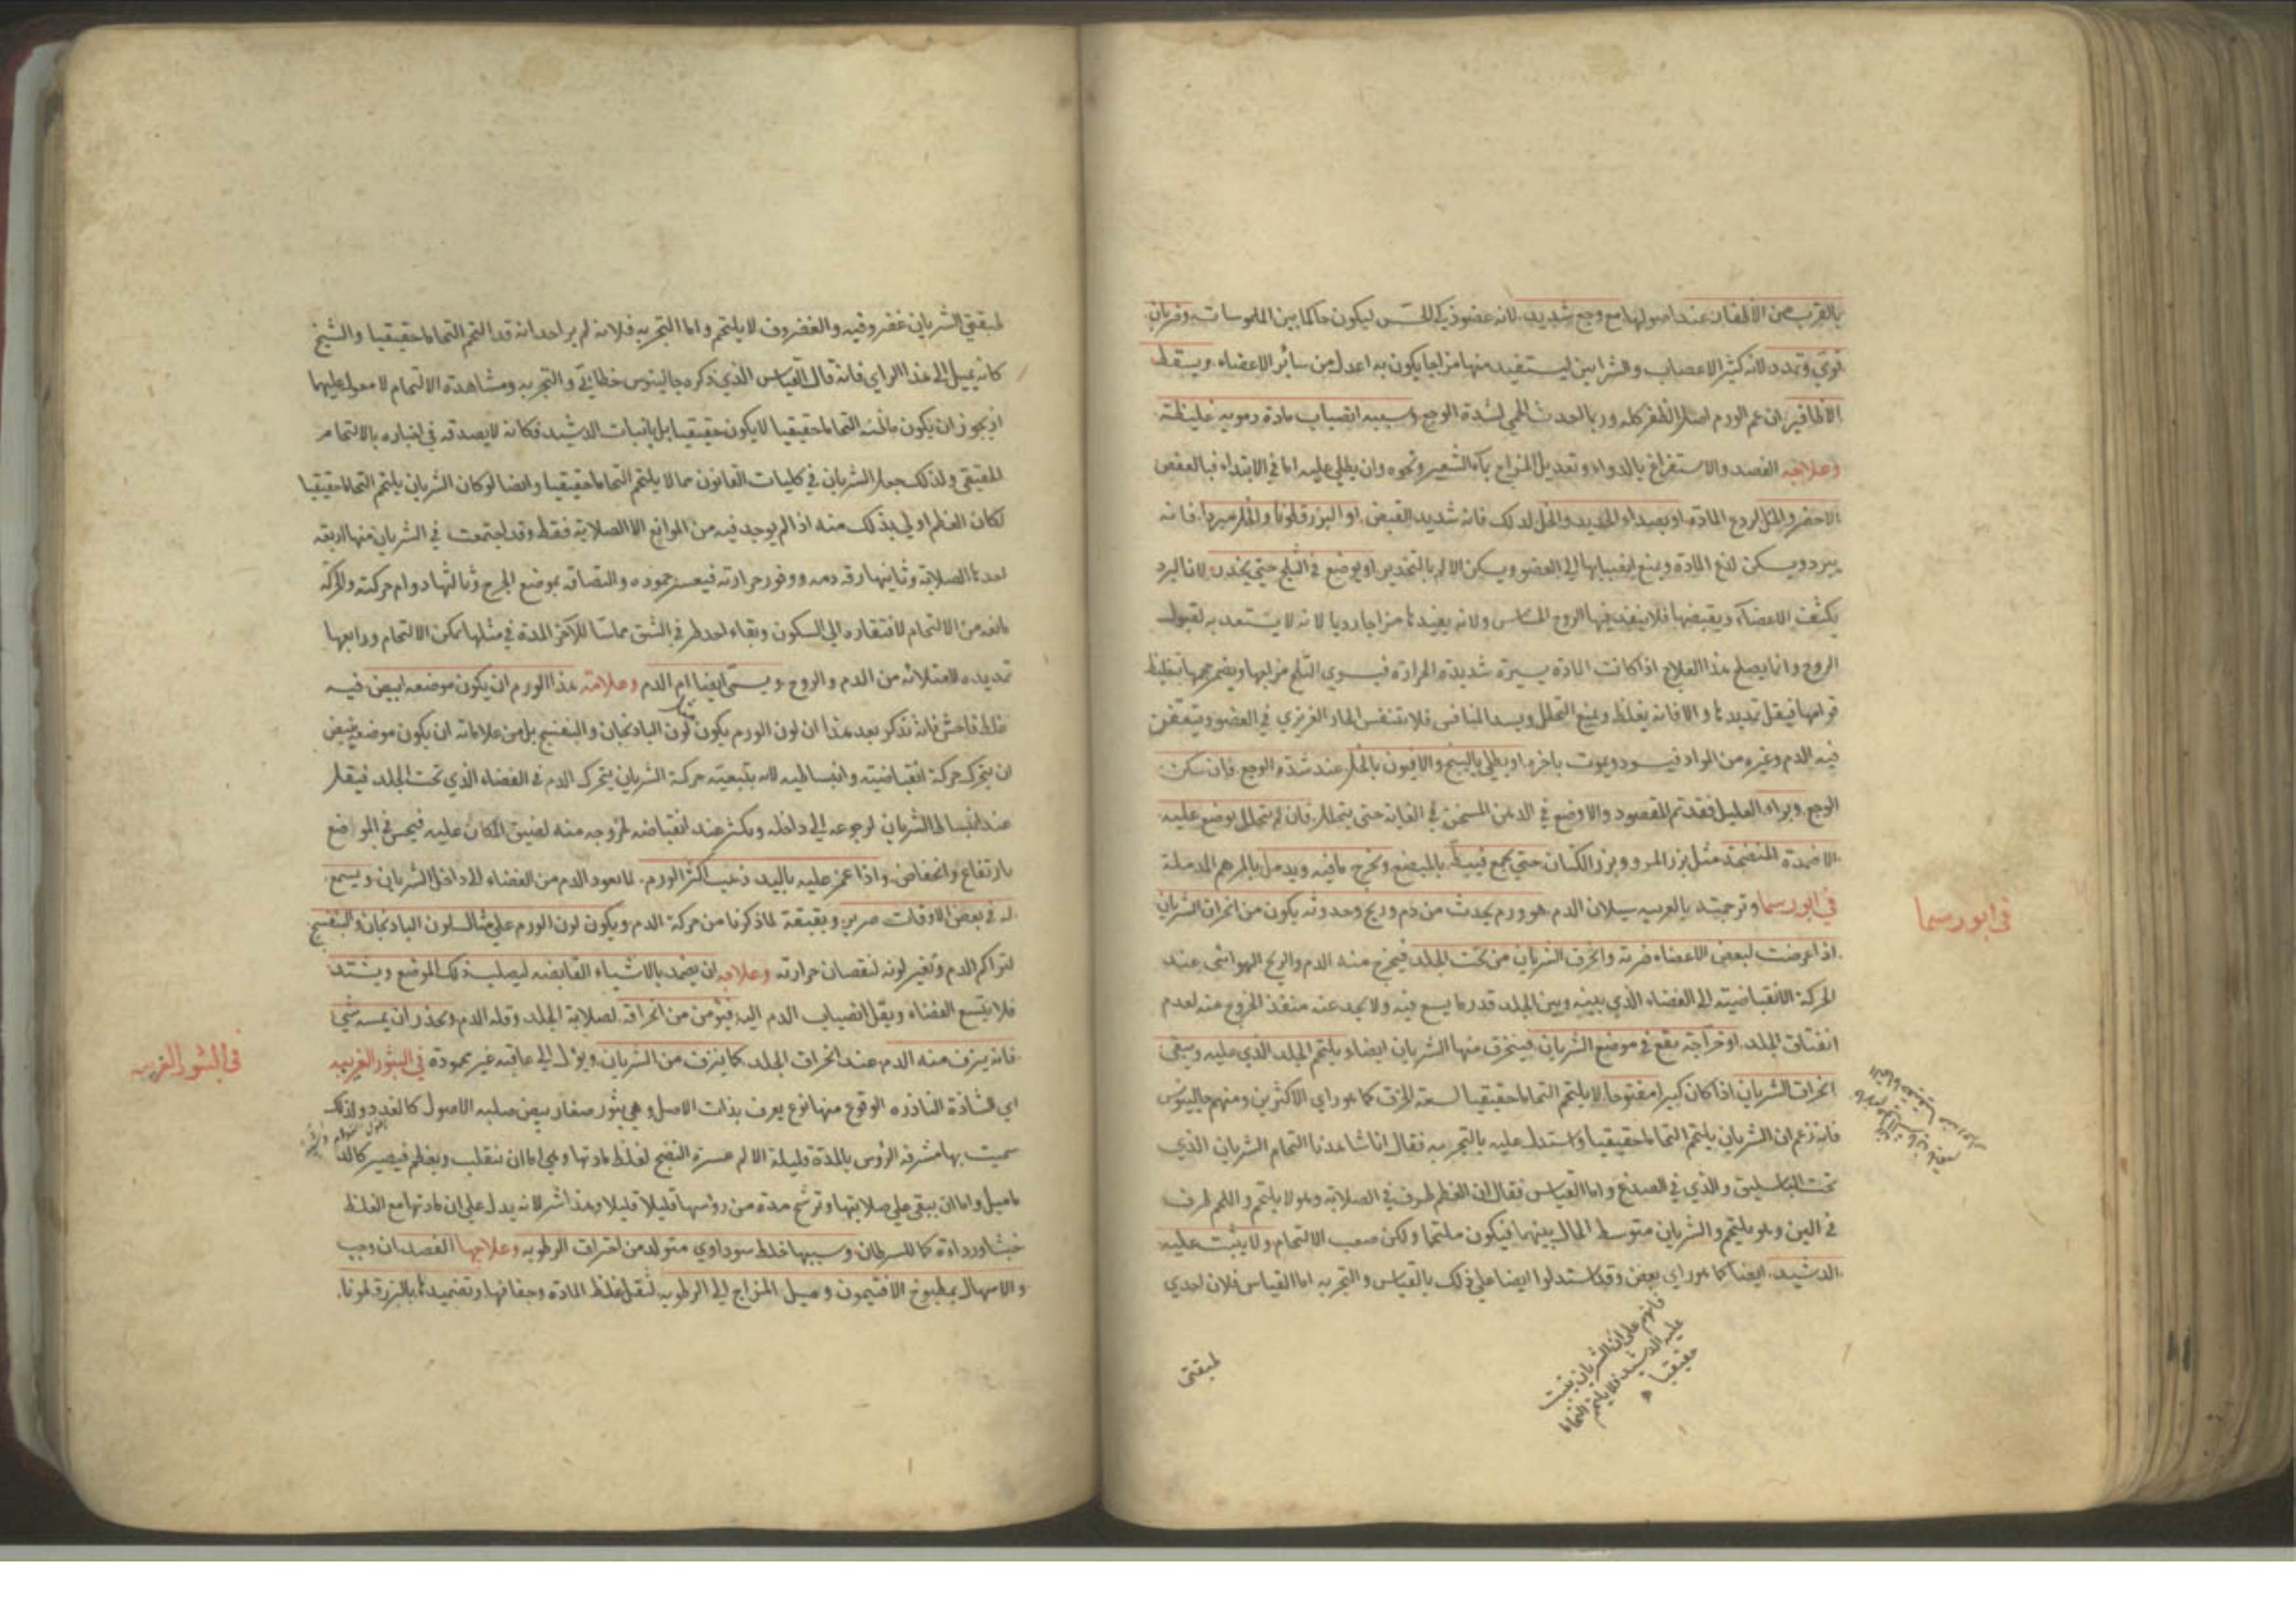 بالقرب من الاظفار عند اصولها مع وجع شديد لانه عضو ذكي الحس ليكون حاكما بين الملموسات وضربان
قوي وتمدد لانه كثير الاعصاب والشرايين ليستفيد منها مزاجا يكون به اعدل من سائر الاعضاء ويسقط
الاظافير ان عم الورم اصل الظفر كله وربما احدث الحمي لشدة الوجع وسببه انصباب مادة دموية غليظة
وعلاجه الفصد والاستفراغ بالدواء وتعديل المزاج بماء الشعير ونحوه وان يطلي عليه اما في الابتداء فبالعفص
الاخضر والخل لردع المادة او بصداء الحديد والخل لذلك فانه شديد القبض او البزرقطونا والخل مبردا فانه
يبرد ويسكن لذع المادة ويمنع انصبابها الي العضو ويسكن الالم بالتخدير او يوضع في الثلج حتي يخدر لان البرد
يكثف الاعضاء ويقبضها فلا ينفذ فيها الروح الحساس ولانه يفيدها مزاجا رديا لانه لا يستعد به لقبول
الروح وانما يصلح هذا العلاج اذا كانت المادة يسيرة شديدة الحرارة فيسوي الثلج مزاجها ويصغر حجمها بتغليظ
قوامها فيقل تمديدها والا فانه يغلظ ويمنع التحلل ويسد المنافس فلا يتنفس الحار الغريزي في العضو ويتعفن
فيه الدم وغيره من المواد فيسود ويموت باخره او يطلي بالبنج والافيون بالخل عند شدة الوجع فان سكن
الوجع وبراء العليل فقد تم المقصود والا وضع في الدهن المسخن في الغاية حتي يتحلل فان لم يتحلل يوضع عليه
الاضمدة المنضجة مثل بزر المرو وبزر الكتان حتي يجمع فيبط بالمبضع ويخرج ما فيه ويدمل بالمرهم المدملة
في ابورسما وترجمته بالعربيه سيلان الدم هو ورم يحدث من دم وريح وحدوثه يكون من انخراق الشريان
في ابورسما
اذا عرضت لبعض الاعضاء ضربة وانخرق الشريان من تحت الجلد فيخرج منه الدم والريح الهوائي عند
الحركة الانقباضيته الي الفضاء الذي بينه وبين الجلد قدر ما يسع فيه ولا يجد عنه منفذ الخروج منه لعدم
انفتاق الجلد او خراجة يقع في موضع الشريان فينخرق منها الشريان ايضا ويلتحم الجلد الذي عليه ويبقي
انخراق الشريان اذا كان كبيرا مفتوحا لا يلتحم التحاما حقيقيا لسعة الخرق كما هو راي الاكثرين ومنهم جالينوس
فانه زعم ان الشريان يلتحم التحاما حقيقيا واستدل عليه بالتجربه فقال انا شاهدنا التحام الشريان الذي
تحت الباسليق والذي في الصدغ واما القياس فقال ان العظم طرف في الصلابة وهو لا يلتحم واللحم طرف
في اللين وهو يلتحم والشريان متوسط الحال بينهما فيكون ملتحما ولكن صعب الالتحام ولا يثبت عليه
الدشيد ايضا كما هو راي بعض وقد استدلوا ايضا علي ذلك بالقياس والتجربه اما القياس فلان احدي
فانهم علي ان الشريان ينبت
عليه الدشيد فلا يلتحم التحاما
حقيقيا
لطبقتي
لطبقتي الشريان غضروفيه والغضروف لا يلتحم واما التجربه فلانه لم ير احد انه قد التحم التحاما حقيقيا والشيخ
كانه يميل الي هذا الراي فانه قال القياس الذي ذكره جالينوس خطابي والتجربه ومشاهدة الالتحام لا معول عليها
اذ يجوز ان يكون ما ظنه التحاما حقيقيا لا يكون حقيقيا بل بانبات الدشيد فكانه لا يصدقه في اخباره بالالتحام
الحقيقي ولذلك جعل الشريان في كليات القانون مما لا يلتحم التحاما حقيقيا وايضا لو كان الشريان يلتحم التحاما حقيقيا
لكان العظم اولي بذلك منه اذ لم يوجد فيه من الموانع الا الصلابة فقط وقد اجتمعت في الشريان منها اربعة
احدها الصلابة وثانيها رقة دمه ووفور حرارته فيعسر جموده والتصاقه بموضع الجرح وثالثها دوام حركته والحركة
مانعه من الالتحام لافتقاره الي السكون وبقاء احد طرفي الشق مماسا للاخر المدة في مثلها يمكن الالتحام ورابعها
تمديده لامتلائه من الدم والروح ويسمي ايضا ام الدم وعلامته هذا الورم ان يكون موضعه ابيض فيه
غلط فاحش فانه تذكر بعد هذا ان لون الورم يكون لون الباذنجان والبنفسج بل من علاماته ان يكون موضعه ينبض
ان يتحرك حركة انقباضيته وانبساطيه لانه بتبعيته حركة الشريان يتحرك الدم في الفضاء الذي تحت الجلد فيقل
عند انبساط الشريان لرجوعه الي داخله ويكثر عند انقباضه لخروجه منه لضيق المكان عليه فيحس في الموضع
بارتفاع وانخفاض واذا غمز عليه باليد ذهب اكثر الورم لما يعود الدم من الفضاء الي داخل الشريان ويسمع
له في بعض الاوقات صرير وبقبقة لما ذكرنا من حركة الدم ويكون لون الورم علي مثال لون الباذنجان والبنفسج
لتراكم الدم وتغير لونه لنقصان حرارته وعلاجه ان يضمد بالاشياء القابضه ليصلب ذلك الموضع ويشتد
فلا يتسع الفضاء ويقل انصباب الدم اليه فيؤمن من انخراقه لصلابة الجلد وقلة الدم ويحذر ان يمسه شي
فانه ينزف منه الدم عند انخراق الجلد كما ينزف من الشريان ويؤل الي عاقبه غير محمودة في البثور الغريبه
في البثور الغريبه
اي الشاذة النادره الوقوع منها نوع يعرف بذات الاصل وهي بثور صغار بيض صلبه الاصول كالغدد ولذلك
سميت بها مشرفة الرؤس بالمدة قليلة الالم عسرة النضج لغلظ مادتها وهي اما ان تنقلب ويعظم فيصير كالد
ماميل واما ان يبقي علي صلابتها وترشح مدة من رؤسها قليلا قليلا وهذا اشر لانه يدل علي ان مادتها مع الغلظ
خبثا ورداءة كما للسرطان وسببها خلط سوداوي متولد من احتراق الرطوبه وعلاجها الفصد ان وجب
والاسهال بمطبوخ الافتيمون وميل المزاج الي الرطوبه لتقل غلظ المادة وجفافها وتضميدها بالبزرقطونا